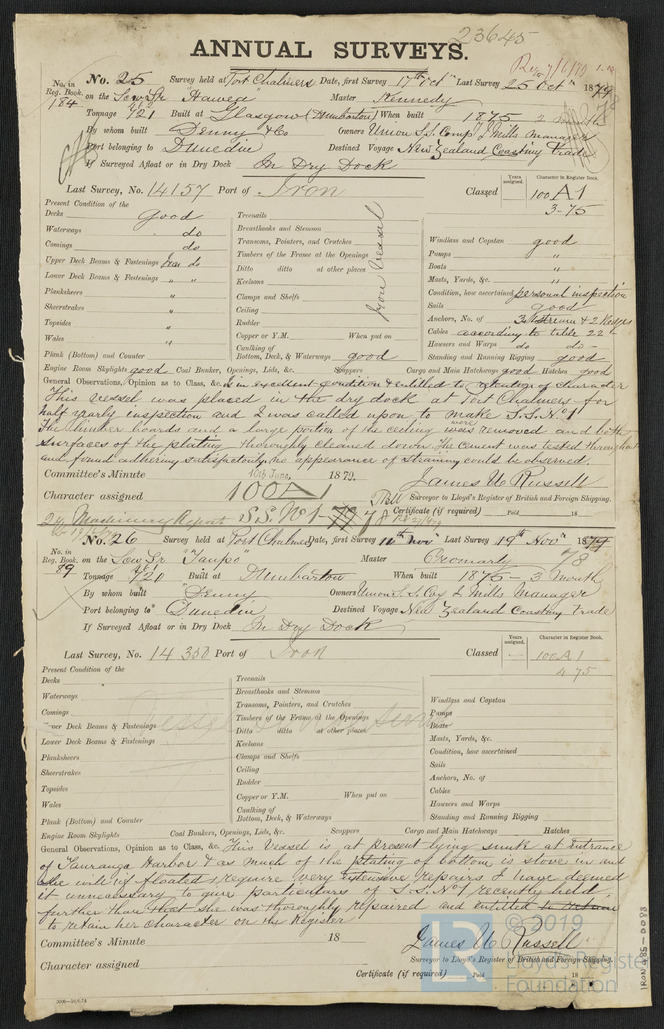 23645
ANNUAL SURVEYS.
No. in Reg. Book. 184
No. 25 Survey held at Port Chalmers Date, first Survey 17th Oct Last Survey 25 Oct 1879
on the Scw Sr "Hawea" Master Kennedy
Tonnage 721 Built at Glasgow (Dumbarton) When built 1875
By whom built Denny & Co Owners Union S.S. Comp J Mills Manager
Port belonging to Dunedin Destined Voyage New Zealand Coasting Trade
If Surveyed Afloat or in Dry Dock In Dry Dock
Last Survey, No. 14157 Port of Iron Classed
Years assigned.
Character in Register Book.
100 A1
3-75
Present Condition of the
Decks good
Waterways do
Comings do
Upper Deck Beams & Fastenings do
Lower Deck Beams & Fastenings " "
Plansheers "
Sheerstrakes "
Topsides "
Wales "
Plank (Bottom) and Counter
Treenails
Breasthooks and Stemson
Transoms, Pointers, and Crutches
Timbers of the Frame at the Openings
Ditto ditto at other places
Keelsons
Clamps and Shelfs
Ceiling
Rudder
Copper or Y.M. When put on
Caulking of Bottom, Deck, & Waterways good
Iron Vessel
Windlass and Capstan good
Pumps "
Boats "
Masts, Yards, &c. "
Condition, how ascertained personal inspection
Sails good
Anchors, No. of 3 1 Stream & 2 Kedges
Cables according to table 22
Hawsers and Warps do do
Standing and Running Rigging good
Engine Room Skylights good Coal Bunker, Openings, Lids, &c. Scuppers Cargo and Main Hatchways good Hatches good
General Observations, Opinion as to Class, &c. Is in excellent condition & entitled to retention of character
This vessel was placed in the dry dock at Port Chalmers for
half yearly inspection and I was called upon to make S.S. No 1
The limber boards and a large portion of the ceiling were removed and both
surfaces of the plating thoroughly cleaned down. The cement was tested throughout
and found adhering satisfactorily, no appearance of straining could be observed.
Committee's Minute 10th June, 1879.
James N Russell
Character assigned 100 A1
Surveyor to Lloyd's Register of British and Foreign Shipping.
Certificate (if required) Paid 18
Machinery Report S.S. No 1 - 78
No. in Reg. Book. 89
No. 26 Survey held at Port Chalmers Date, first Survey 11th Nov Last Survey 19th Nov 1879
78
on the Scw Sr "Taupo" Master Cromarty
Tonnage 720 Built at Dumbarton When built 1875 - 3 month
By whom built Denny Owners Union S.S. Coy J Mills Manager
Port belonging to Dunedin Destined Voyage New Zealand Coasting Trade
If Surveyed Afloat or in Dry Dock In Dry Dock
Last Survey, No. 14350 Port of Iron Classed
Years assigned.
Character in Register Book.
100 A1
4 75
Present Condition of the
Decks
Waterways
Comings
Upper Deck Beams & Fastenings
Lower Deck Beams & Fastenings
Plansheers
Sheerstrakes
Topsides
Wales
Plank (Bottom) and Counter
Treenails
Breasthooks and Stemson
Transoms, Pointers, and Crutches
Timbers of the Frame at the Openings
Ditto ditto at other places
Keelsons
Clamps and Shelfs
Ceiling
Rudder
Copper or Y.M. When put on
Caulking of Bottom, Deck, & Waterways
Windlass and Capstan
Pumps
Boats
Masts, Yards, &c.
Condition, how ascertained
Sails
Anchors, No. of
Cables
Hawsers and Warps
Standing and Running Rigging
Engine Room Skylights Coal Bunkers, Openings, Lids, &c. Scuppers Cargo and Main Hatchways Hatches
General Observations, Opinion as to Class, &c. This Vessel is at present lying sunk at entrance
of Tauranga Harbor & as much of the plating of bottom is stove in and
she will if floated require very extensive repairs I have deemed
it unnecessary to give particulars of S.S. No 1 recently held,
further than that she was thoroughly repaired and entitled to return
to retain her character on the Register
Committee's Minute 18
James N Russell
Surveyor to Lloyd's Register of British and Foreign Shipping.
Character assigned
Certificate (if required) Paid 18
© 2019
LR
Lloyd's Register
Foundation
IRON 485-0083